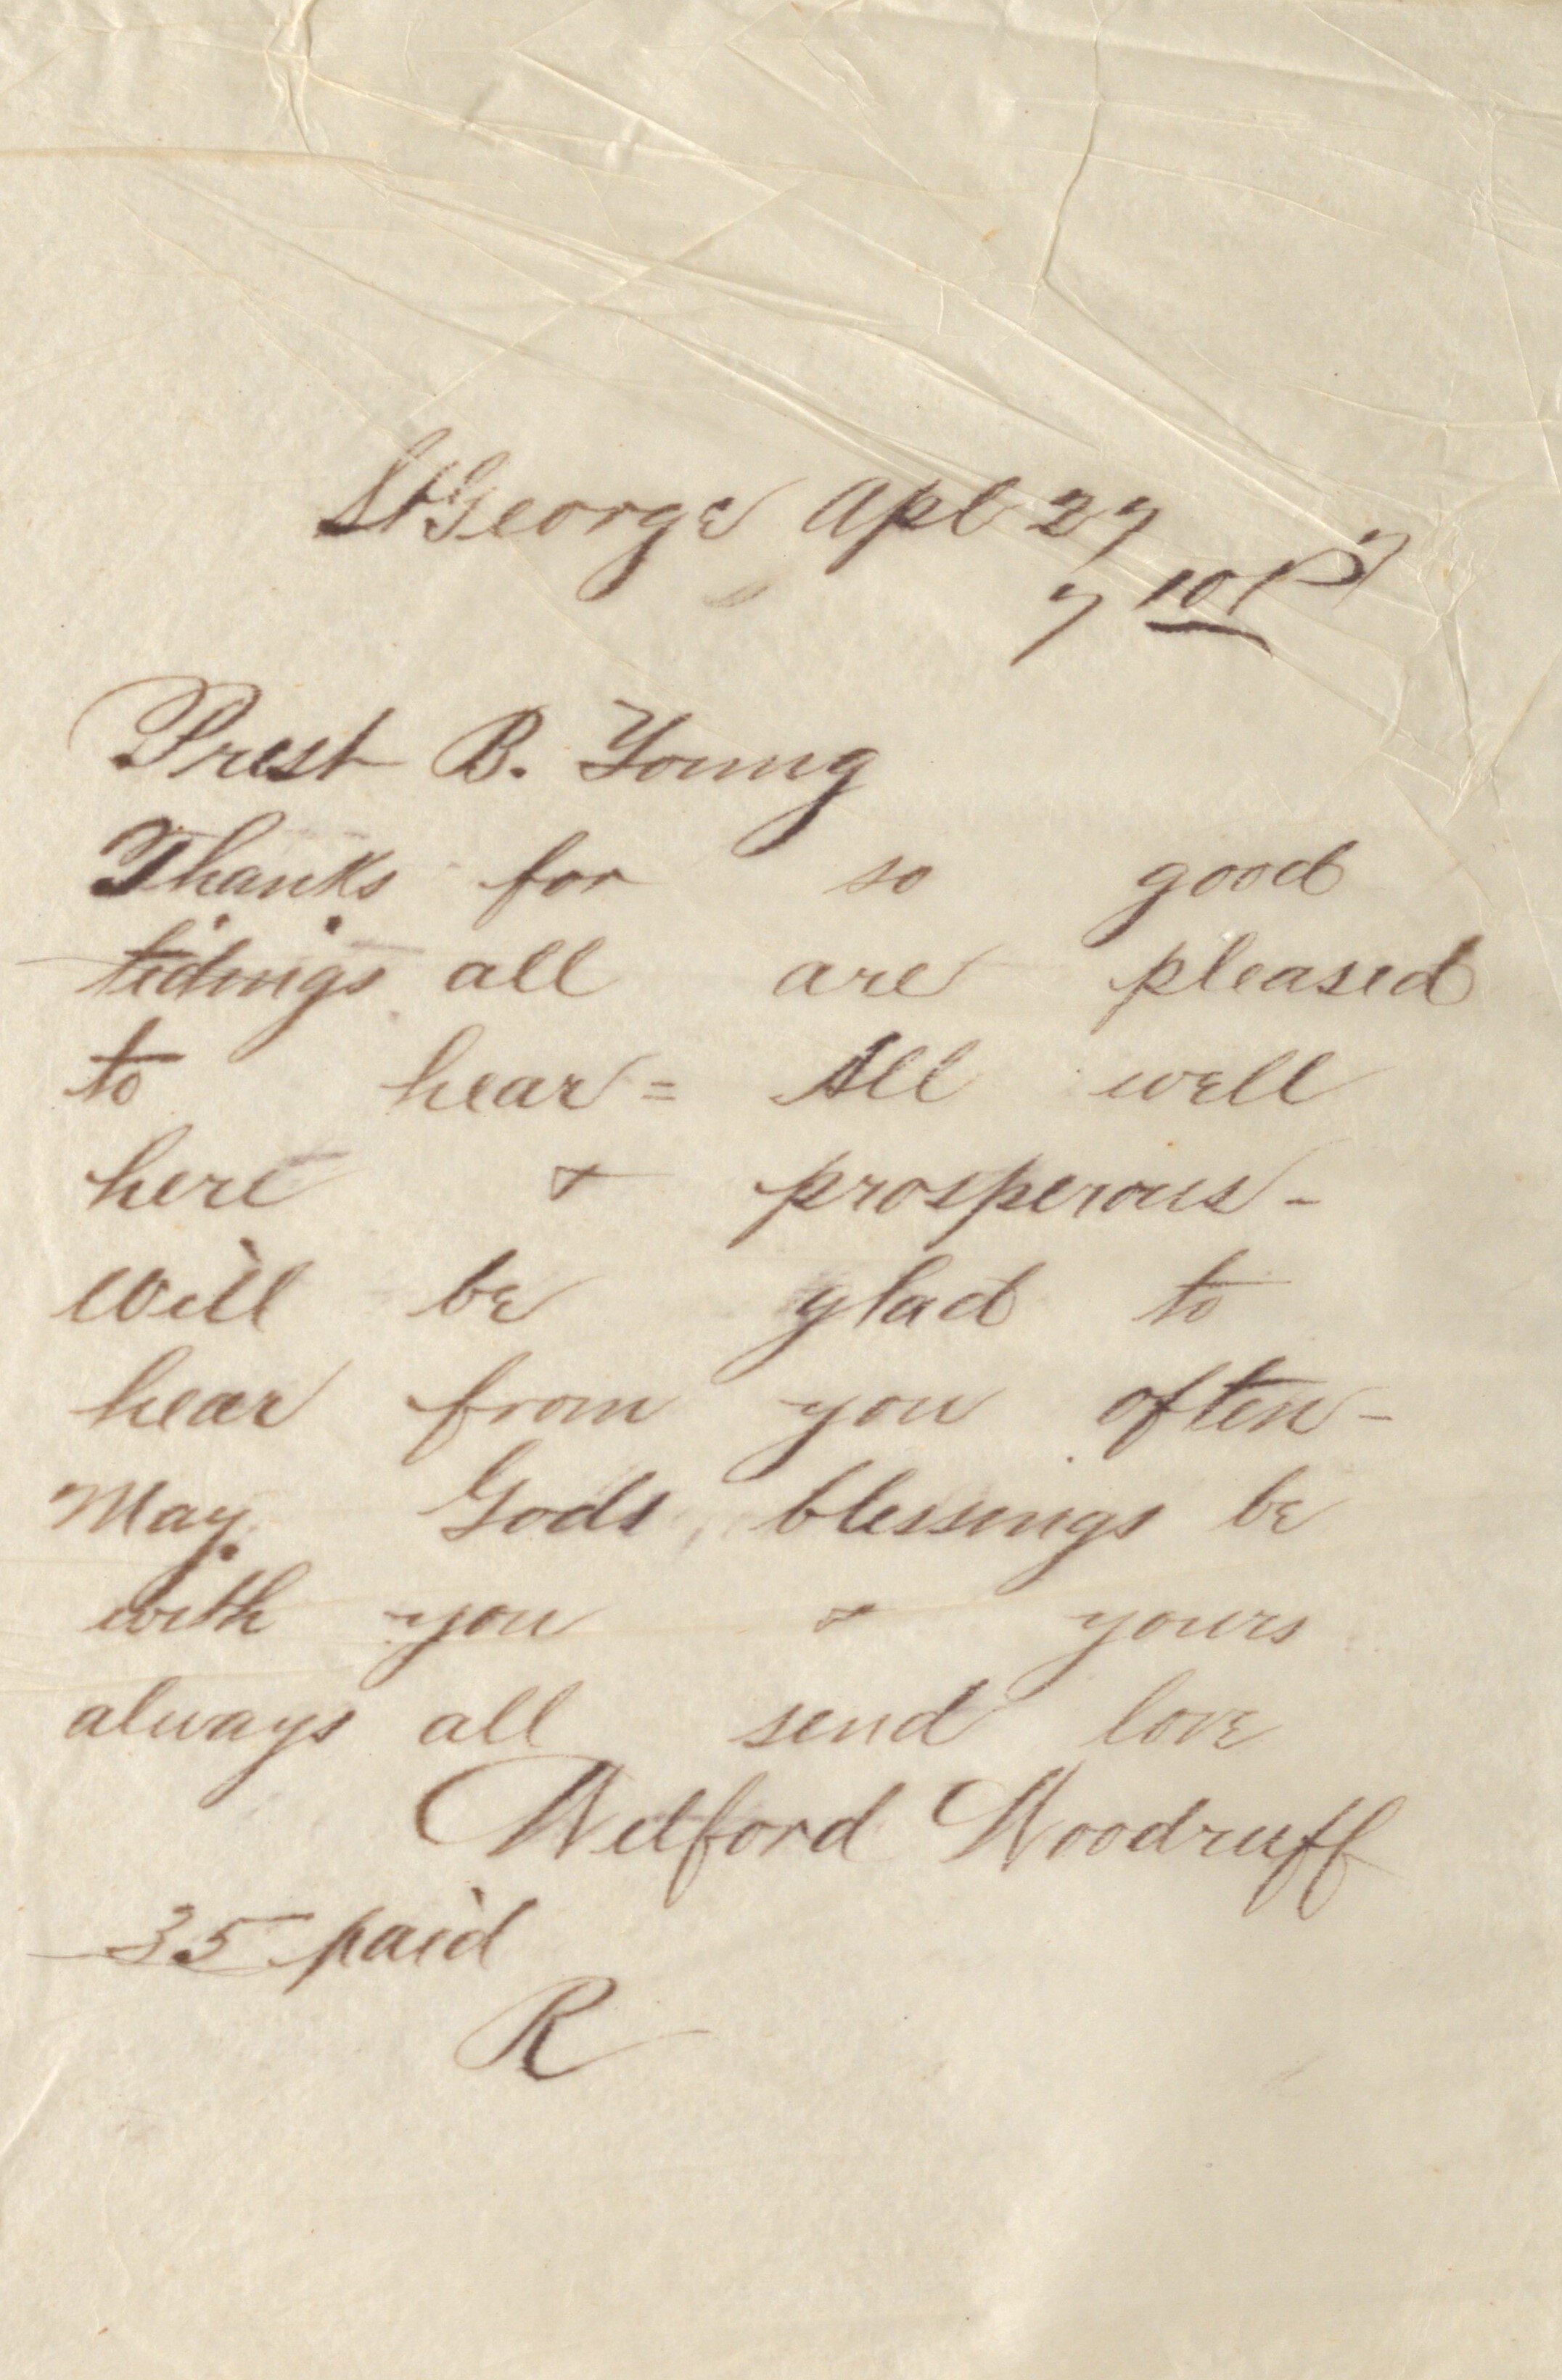 St George Apl 27
7 10 P
Prest B. Young
Thanks for so good
tidings all are pleased
to hear = All well
here & prosperous -
will be glad to
hear from you often -
May Gods blessings be
with you & yours
always all send love
Wilford Woodruff
35 paid
R